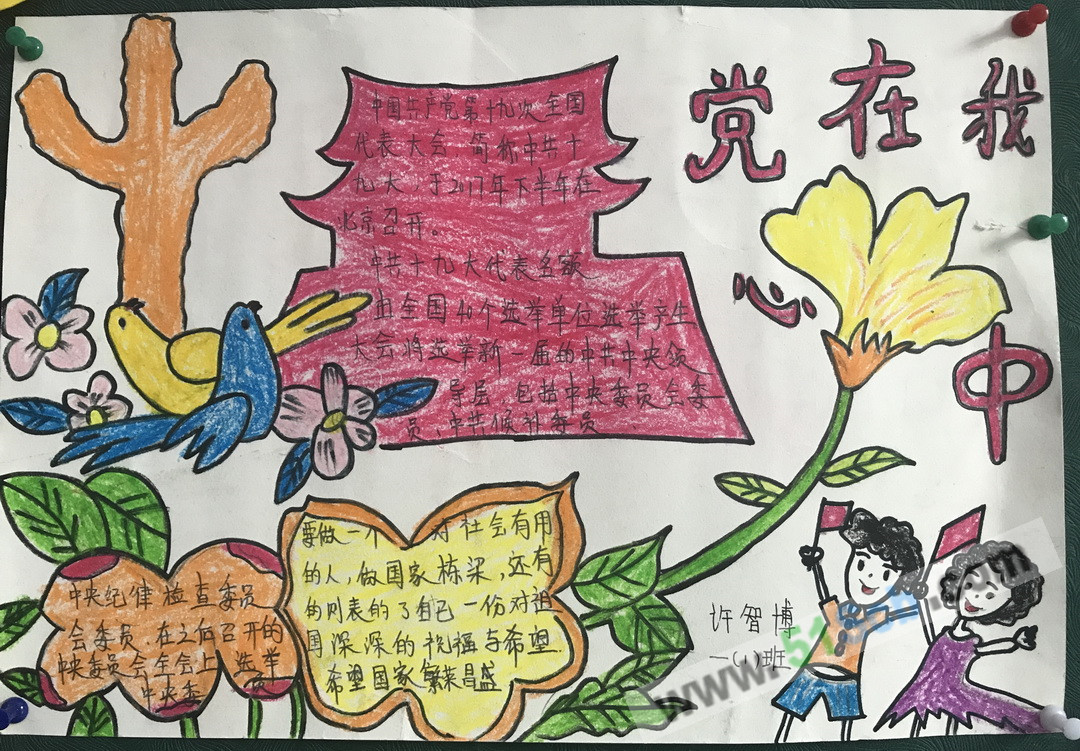 党在我
心
中
中国共产党第十九次全国
代表大会,简称中共十
九大,于2017年下半年在
北京召开。
中共十九大代表名额
由全国40个选举单位选举产生
大会将选举新一届的中共中央领
导层,包括中央委员会委
员、中共候补委员
要做一个 对社会有用
的人,做国家栋梁,还有
的则表的了自己一份对祖
国深深的祝福与希望
希望国家繁荣昌盛
中央纪律检查委员
会委员.在之后召开的
中央委员会全会上,选举
中央委
许智博
一(1)班
www.